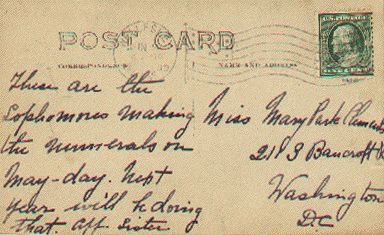 POST CARD
CORRESPONDENCE
NAME AND ADDRESS
U.S. POSTAGE
ONE CENT
These are the
Sophomores making
the numerals on
May-day. Next
year will be doing
that. Aff. Sister
Miss Mary Park
2113 Bancroft
Washington
D.C